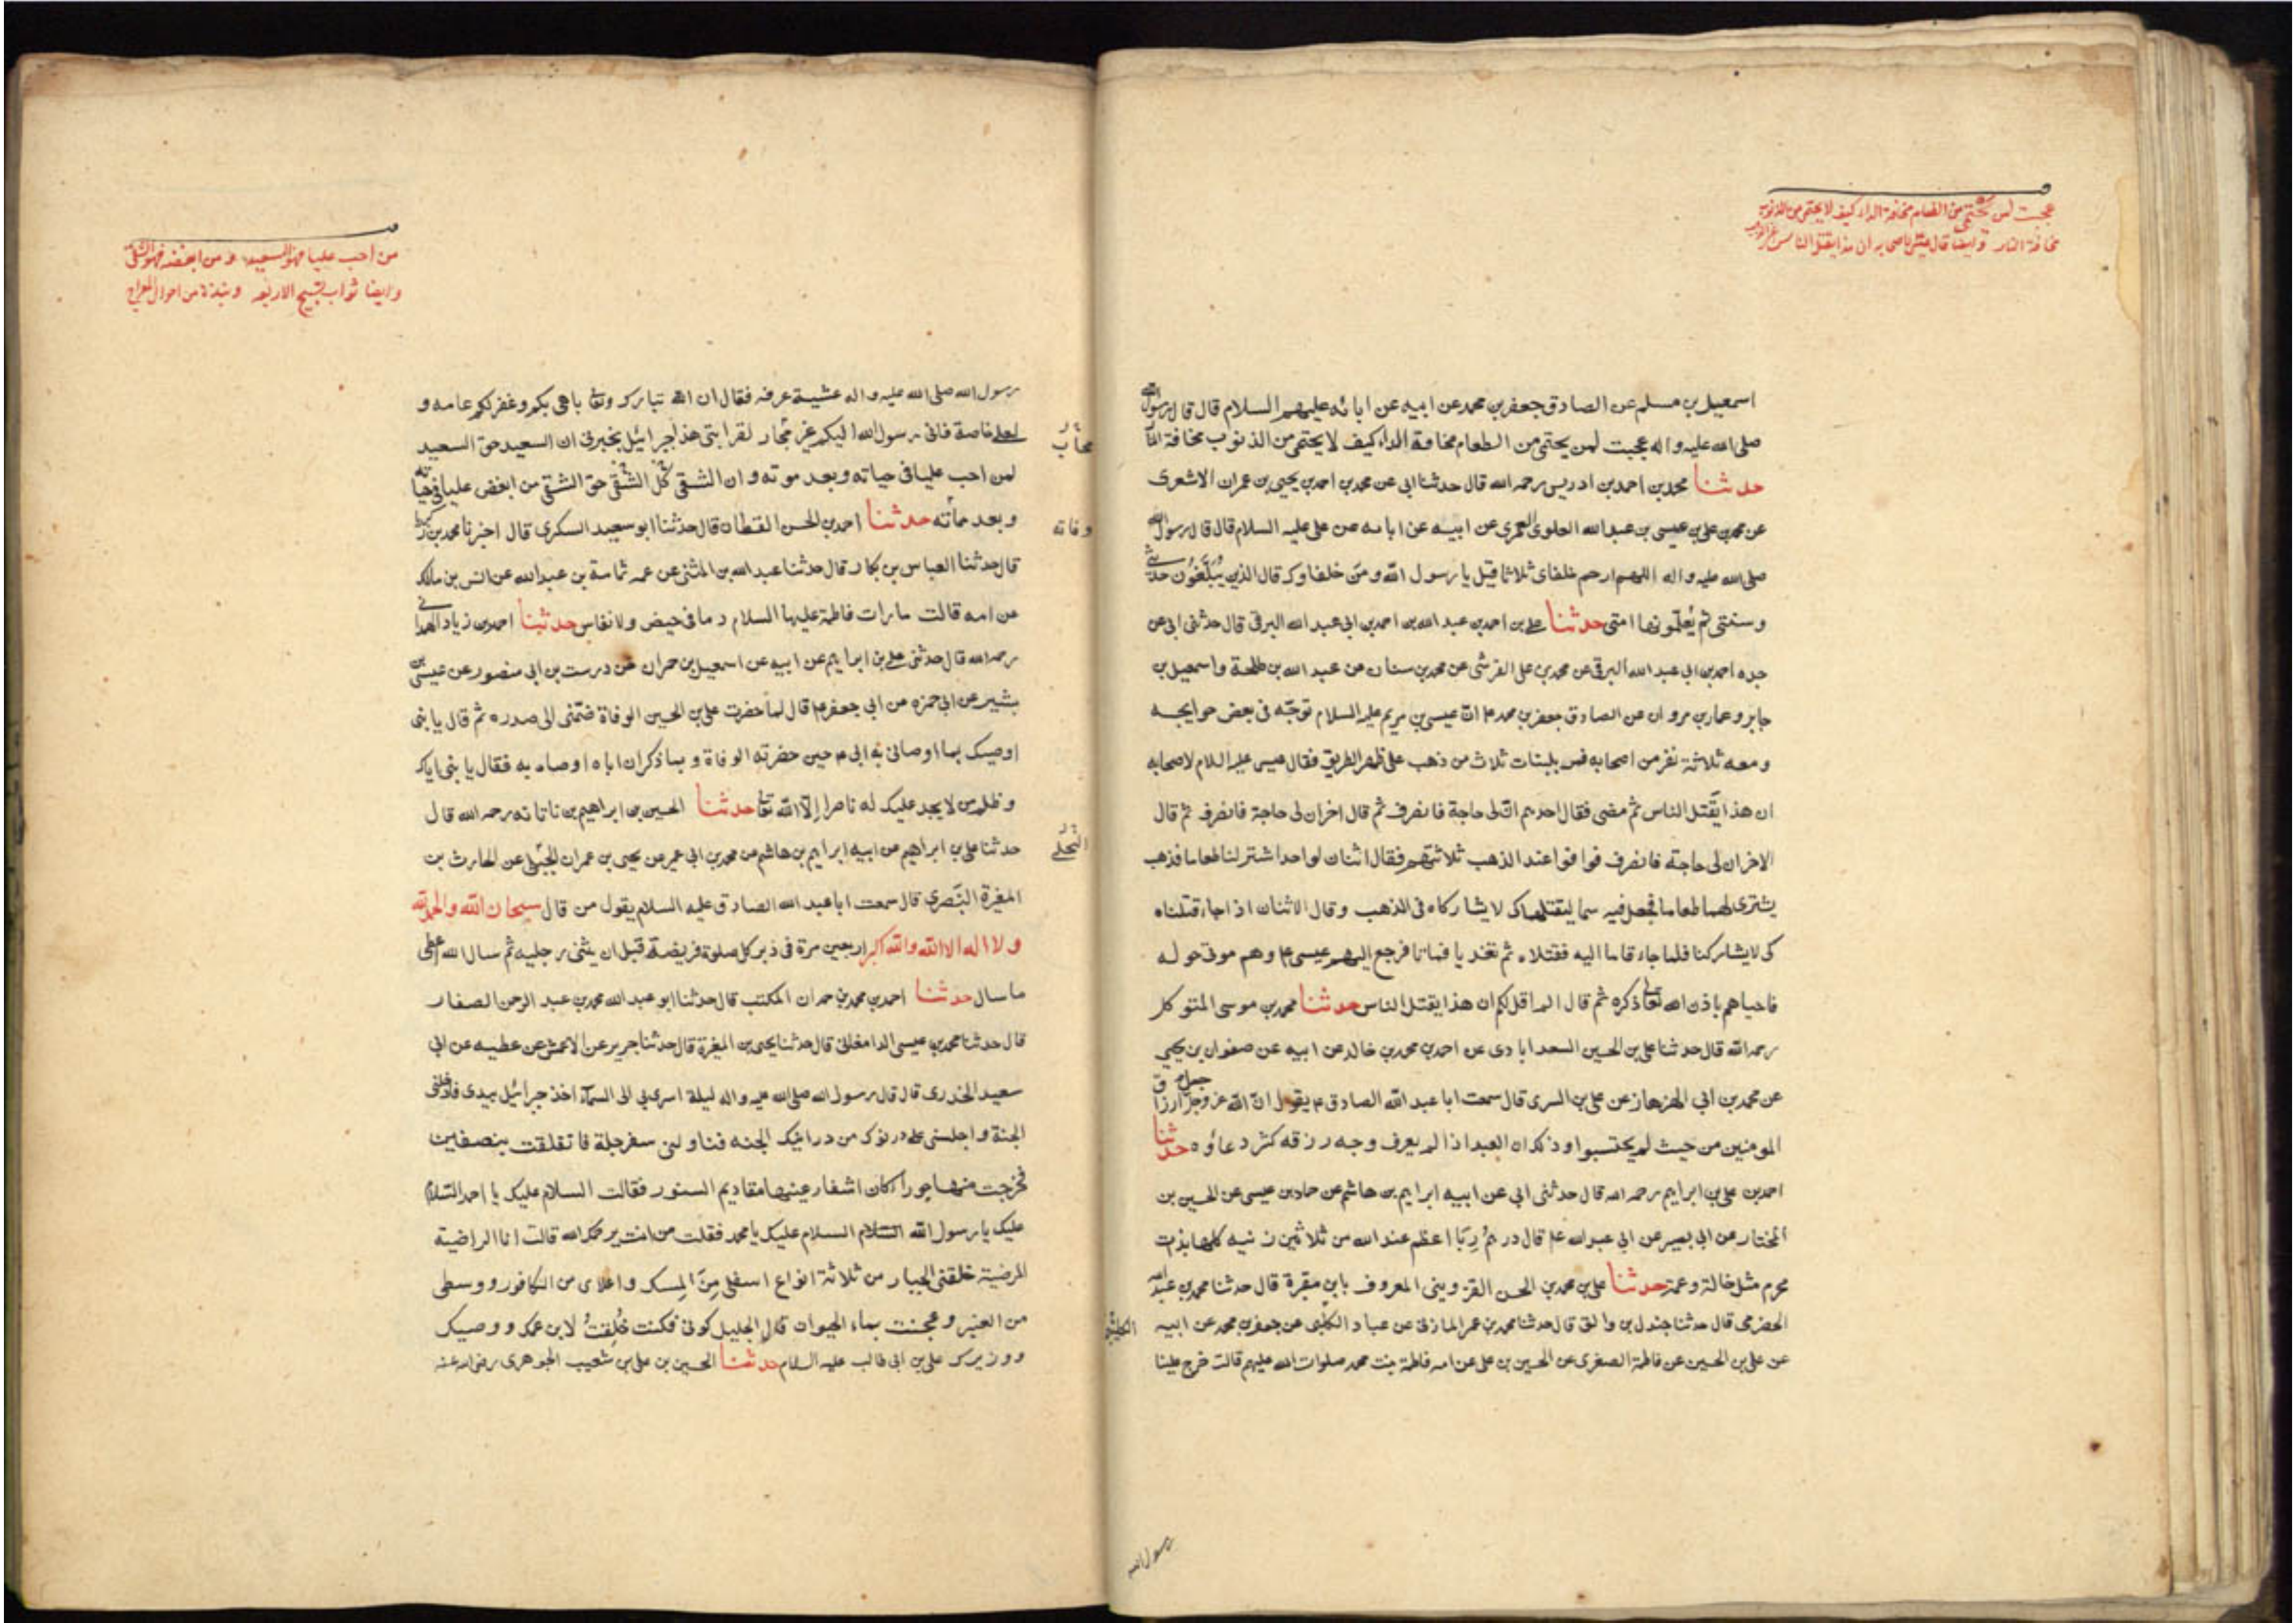 عجبت لمن يحتمي من الطعام مخافة الداء كيف لا يحتمي من الذنوب
مخافة النار وايضا قال عيسى لاصحابه ان هذا يقتل الناس
اسمعيل بن مسلم عن الصادق جعفر بن محمد عن ابيه عن ابائه عليهم السلام قال قال رسول الله
صلى الله عليه واله عجبت لمن يحتمى من الطعام مخافة الداء كيف لا يحتمى من الذنوب مخافة النار
حدثنا محمد بن احمد بن ادريس رحمه الله قال حدثنا ابى عن محمد بن احمد بن يحيى بن عمران الاشعرى
عن محمد بن على بن عيسى بن عبد الله العلوى العمرى عن ابيه عن ابائه عن على عليه السلام قال قال رسول الله
صلى الله عليه واله اللهم ارحم خلفاى ثلاثا قيل يا رسول الله ومن خلفاوك قال الذين يُبَلِّغُون حديثى
وسنتى ثم يُعلّمونها امتى حدثنا على بن احمد بن عبد الله بن احمد بن ابى عبد الله البرقى قال حدثنى ابى عن
جده احمد بن ابى عبد الله البرقى عن محمد بن على القرشى عن محمد بن سنان عن عبد الله بن طلحة واسمعيل بن
جابر وعمار بن مروان عن الصادق جعفر بن محمد ع انّ عيسى بن مريم عليه السلام توجّه فى بعض حوايجه
ومعه ثلاثة نفر من اصحابه فمر بلبنات ثلاث من ذهب على ظهر الطريق فقال عيسى عليه السلام لاصحابه
ان هذا يقتل الناس ثم مضى فقال احدهم انّ لى حاجة فانصرف ثم قال اخر ان لى حاجة فانصرف ثم قال
الاخر ان لى حاجة فانصرف فوافوا عند الذهب ثلاثتهم فقال اثنان لواحد اشتر لنا طعاما فذهب
يشترى لهما طعاما فجعل فيه سما ليقتلهما كى لا يشاركاه فى الذهب وقال الاثنان اذا جاء قتلناه
كى لا يشاركنا فلما جاء قاما اليه فقتلاه ثم تغديا فماتا فرجع اليهم عيسى ع وهم موتى حوله
فاحياهم باذن الله تعالى ذكره ثم قال الم اقل لكم ان هذا يقتل الناس حدثنا محمد بن موسى المتوكل
رحمه الله قال حدثنا على بن الحسين السعدابادى عن احمد بن محمد بن خالد عن ابيه عن صفوان بن يحيى
عن محمد بن ابى الهزهاز عن على بن السرى قال سمعت ابا عبد الله الصادق ع يقول انّ الله عز وجل جعل ارزاق
المومنين من حيث لم يحتسبوا وذلك ان العبد اذا لم يعرف وجه رزقه كثر دعاؤه حدثنا
احمد بن على بن ابراهيم رحمه الله قال حدثنى ابى عن ابيه ابراهيم بن هاشم عن حماد بن عيسى عن الحسين بن
المختار عن ابى بصير عن ابى عبد الله ع قال درهم رِبًا اعظم عند الله من ثلاثين زنيه كلها بذات
محرم مثل خالة وعمة حدثنا على بن محمد بن الحسن القزوينى المعروف بابن مقبرة قال حدثنا محمد بن عبد الله
الحضرمى قال حدثنا جندل بن والق قال حدثنا محمد بن عمر المازنى عن عباد الكلبى عن جعفر بن محمد عن ابيه
عن على بن الحسين عن فاطمة الصغرى عن الحسين بن على عن امه فاطمة بنت محمد صلوات الله عليهم قالت خرج علينا
رسول الله
من احب عليا فهو السعيد ومن ابغضه فهو الشقى
وايضا ثواب تسبيح الاربعه ونبذة من احوال المعراج
رسول الله صلى الله عليه واله عشيّة عرفه فقال ان الله تبارك وتعالى باهى بكم وغفر لكم عامه و
لعلى خاصة فانى رسول الله اليكم غير محار لقرابتى هذا جبرائيل يخبرنى ان السعيد حق السعيد
محاب
لمن احب عليا فى حياته وبعد موته وان الشقى كل الشقى حق الشقى من ابغض عليا فى حياته
وبعد مماته حدثنا احمد بن الحسن القطان قال حدثنا ابو سعيد السكرى قال اخبرنا محمد بن زكريا
وفاته
قال حدثنا العباس بن بكار قال حدثنا عبد الله بن المثنى عن عمه ثمامة بن عبد الله عن انس بن مالك
عن امه قالت ما رات فاطمة عليها السلام دما فى حيض ولا نفاس حدثنا احمد بن زياد الهمدانى
رحمه الله قال حدثنى على بن ابراهيم عن ابيه عن اسمعيل بن مران عن درست بن ابى منصور عن عيسى بن
بشير عن ابى حمزه عن ابى جعفر ع قال لما حضرت على بن الحسين الوفاة ضمّنى الى صدره ثم قال يا بنى
اوصيك بما اوصانى به ابى ع حين حضرته الوفاة وبما ذكر ان اباه اوصاه به فقال يا بنى اياك
وظلم من لا يجد عليك له ناصرا إلّا الله تعالى حدثنا الحسين بن ابراهيم بن ناتانه رحمه الله قال
حدثنا على بن ابراهيم عن ابيه ابراهيم بن هاشم عن محمد بن ابى عمير عن يحيى بن عمران الحلبى عن الحارث بن
المغيرة النّصرى قال سمعت ابا عبد الله الصادق عليه السلام يقول من قال سبحان الله والحمد لله
ولا اله الا الله والله اكبر اربعين مرة فى دبر كل صلوة فريضة قبل ان يثنى رجليه ثم سال الله اعطى
ما سال حدثنا احمد بن محمد بن حمدان المكتب قال حدثنا ابو عبد الله محمد بن عبد الرحمن الصفار
قال حدثنا محمد بن عيسى الدامغانى قال حدثنا يحيى بن المغيرة قال حدثنا جرير عن الاعمش عن عطيه عن ابى
سعيد الخدرى قال قال رسول الله صلى الله عليه واله ليلة اسرى بى الى السمآء اخذ جبرائيل بيدى فادخلنى
الجنة واجلسنى على درنوك من درانيك الجنه فناولنى سفرجلة فانفلقت بنصفين
فخرجت منها حوراء كان اشفار عينها مقاديم النسور فقالت السلام عليك يا احمد السّلام
عليك يا رسول الله السّلام السلام عليك يا محمد فقلت من انت يرحمك الله قالت انا الراضية
المرضية خلقنى الجبار من ثلاثة انواع اسفلى مِنَ المِسك واعلاى من الكافور ووسطى
من العنبر وعجنت بماء الحيوان قال الجليل كونى فكنت خُلِقتُ لابن عمك ووصيك
ووزيرك على بن ابى طالب عليه السلام حدثنا الحسين بن على بن شعيب الجوهرى رضى الله عنه